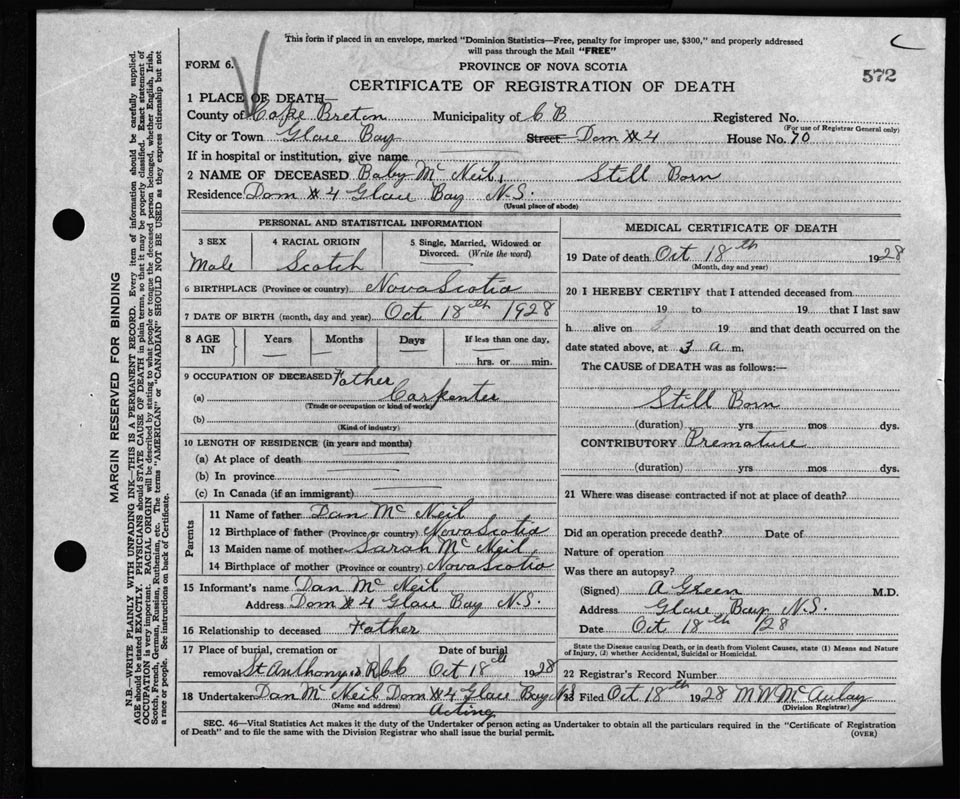 This form if placed in an envelope, marked "Dominion Statistics—Free, penalty for improper use, $300," and properly addressed
will pass through the Mail "FREE"
FORM 6.
PROVINCE OF NOVA SCOTIA
572
CERTIFICATE OF REGISTRATION OF DEATH
1 PLACE OF DEATH—
County of Cape Breton Municipality of C B Registered No.
(For use of Registrar General only)
City or Town Glace Bay Street Dom #4 House No. 70
If in hospital or institution, give name
2 NAME OF DECEASED Baby Mc Neil, Still Born
Residence Dom #4 Glace Bay N.S.
(Usual place of abode)
PERSONAL AND STATISTICAL INFORMATION
3 SEX 4 RACIAL ORIGIN 5 Single, Married, Widowed or
Divorced. (Write the word)
Male Scotch
6 BIRTHPLACE (Province or country) Nova Scotia
7 DATE OF BIRTH (month, day and year) Oct 18th 1928
8 AGE IN Years Months Days If less than one day,
hrs. or min.
9 OCCUPATION OF DECEASED Father
(a) Carpenter
(Trade or occupation or kind of work)
(b)
(Kind of industry)
10 LENGTH OF RESIDENCE (in years and months)
(a) At place of death
(b) In province
(c) In Canada (if an immigrant)
Parents
11 Name of father Dan Mc Neil
12 Birthplace of father (Province or country) Nova Scotia
13 Maiden name of mother Sarah Mc Neil
14 Birthplace of mother (Province or country) Nova Scotia
15 Informant's name Dan Mc Neil
Address Dom #4 Glace Bay N.S.
16 Relationship to deceased Father
17 Place of burial, cremation or Date of burial
removal St Anthony's Oct 18th 1928
18 Undertaker Dan Mc Neil Dom #4 Glace Bay N.S
(Name and address) Acting
MEDICAL CERTIFICATE OF DEATH
19 Date of death Oct 18th 1928
(Month, day and year)
20 I HEREBY CERTIFY that I attended deceased from
19 to 19 that I last saw
h alive on 19 and that death occurred on the
date stated above, at 3 a m.
The CAUSE of DEATH was as follows:—
Still Born
(duration) yrs mos dys.
CONTRIBUTORY Premature
(duration) yrs mos dys.
21 Where was disease contracted if not at place of death?
Did an operation precede death? Date of
Nature of operation
Was there an autopsy?
(Signed) A Green M.D.
Address Glace Bay N.S.
Date Oct 18th /28
State the Disease causing Death, or in death from Violent Causes, state (1) Means and Nature
of Injury, (2) whether Accidental, Suicidal or Homicidal.
22 Registrar's Record Number
23 Filed Oct 18th 1928 M W McAulay
(Division Registrar)
SEC. 46—Vital Statistics Act makes it the duty of the Undertaker or person acting as Undertaker to obtain all the particulars required in the "Certificate of Registration
of Death" and to file the same with the Division Registrar who shall issue the burial permit.
(OVER)
MARGIN RESERVED FOR BINDING
N.B.—WRITE PLAINLY WITH UNFADING INK—THIS IS A PERMANENT RECORD. Every item of information should be carefully supplied.
AGE should be stated EXACTLY. PHYSICIANS should STATE CAUSE OF DEATH in plain terms, so that it may be properly classified. Exact statement of
OCCUPATION is very important. RACIAL ORIGIN will be described by stating to what people or tongue the deceased person belonged, whether English, Irish,
Scotch, French, German, Russian, Ruthenian, etc. The terms "AMERICAN" or "CANADIAN" SHOULD NOT BE USED as they express citizenship but not
a race or people. See instructions on back of Certificate.